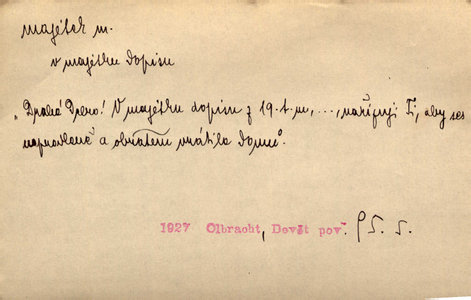 majetek m.
v majetku dopisu
„Drahá Pepo! V majetku dopisu z 19. t. m., ..., nařizuji Ti, aby ses
napravené a obratem vrátila domů".
1927 Olbracht, Devět pov. 95. s.